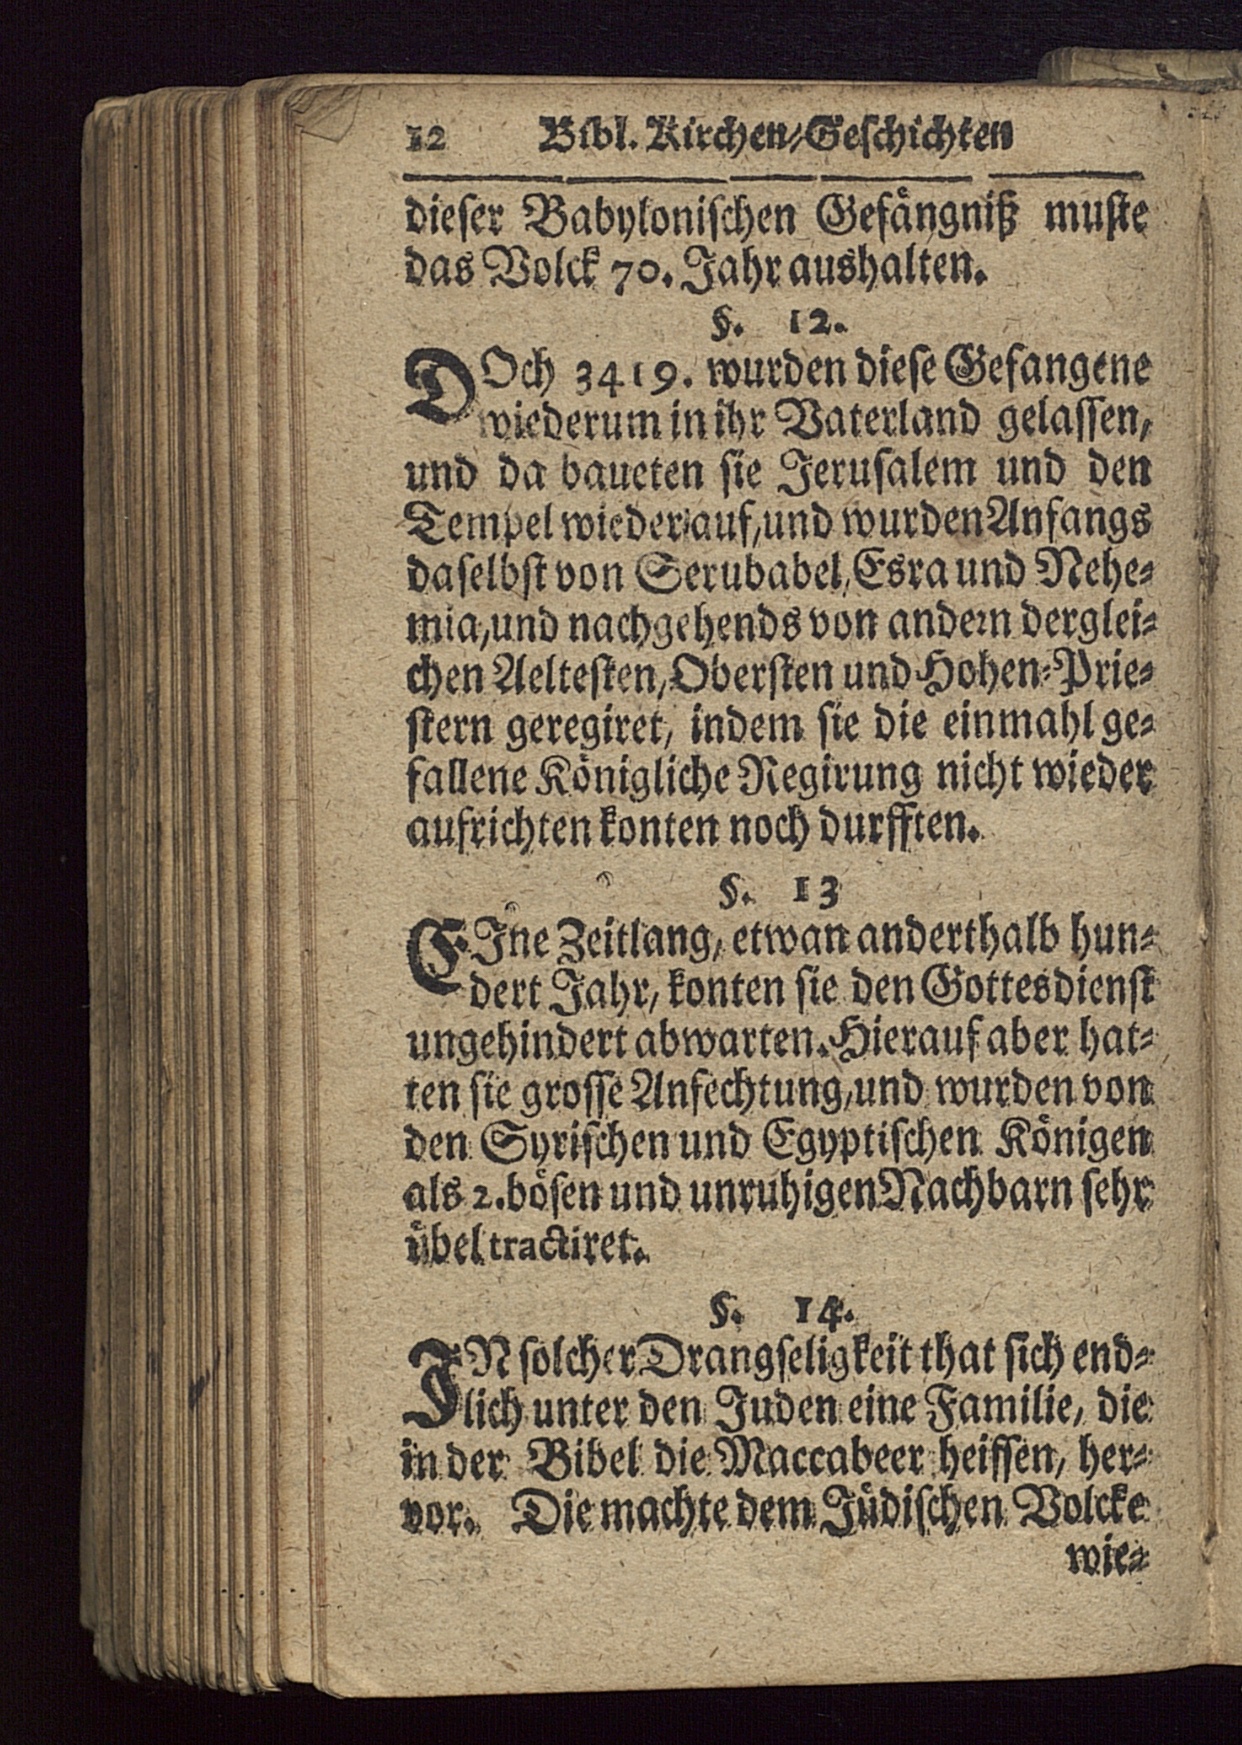 12 Bibl. Kirchen-Geschichten
dieser Babylonischen Gefängniß muste
das Volck 70. Jahr aushalten.
§. 12.
DOch 3419. wurden diese Gefangene
wiederum in ihr Vaterland gelassen,
und da baueten sie Jerusalem und den
Tempel wieder auf, und wurden Anfangs
daselbst von Serubabel, Esra und Nehe-
mia, und nachgehends von andern derglei-
chen Aeltesten, Obersten und Hohen-Prie-
stern geregiret, indem sie die einmahl ge-
fallene Königliche Regirung nicht wieder
aufrichten konten noch durfften.
§. 13
EJne Zeitlang, etwan anderthalb hun-
dert Jahr, konten sie den Gottesdienst
ungehindert abwarten. Hierauf aber hat-
ten sie grosse Anfechtung, und wurden von
den Syrischen und Egyptischen Königen
als 2. bösen und unruhigen Nachbarn sehr
übel tractiret.
§. 14.
JN solcher Drangseligkeit that sich end-
lich unter den Juden eine Familie, die
in der Bibel die Maccabeer heissen, her-
vor. Die machte dem Jüdischen Volcke
wie-